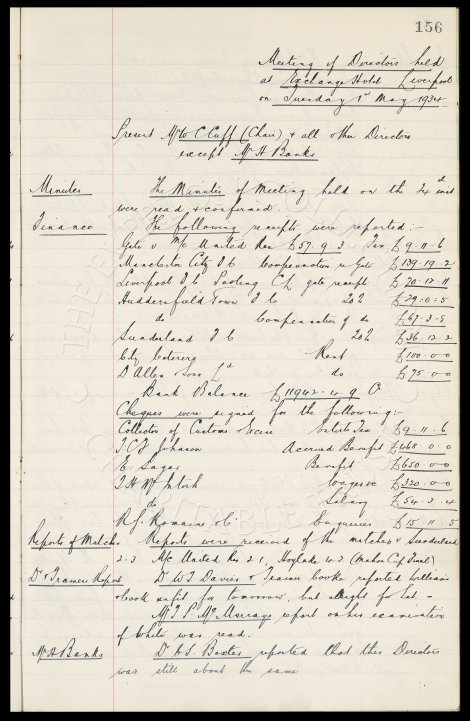 156
Meeting of Directors held
at Exchange Hotel Liverpool
on Tuesday 1st May 1934
Present Mr W C Cuff (Chair) & all other Directors
except Mr H Banks
Minutes The Minutes of Meeting held on the 24th inst
were read & confirmed
Finance The following receipts were reported:-
Gate v M/c United Res £57. 9. 3 Tax £9. 11. 6
Manchester City F C Compensation re Gate £139. 19. 2
Liverpool F C gate receipt £70. 12. 11
Huddersfield Town F C 20% £29. 0. 5
do Compensation of do £67. 3. 8
Sunderland F C 20% £36. 12. 2
City Caterers Rent £100. 0. 0
D Allen Sons Ld do £75. 0. 0
Bank Balance £11942. 4. 9
Cheques were signed for the following:-
Collector of Customs Excise Ents Tax £9. 11. 6
T C F Johnson Accrued Benefit £468. 0. 0
C. Sagar Benefit £650. 0. 0
T H McIntosh Wages &c £320. 0. 0
do Salary £54. 3. 4
R. J. Romains & Co Enquiries £15. 11. 5
Reports of Matches Reports were received of the matches v Sunderland
2. 3 M/c United Res 2. 1, Hoylake (Mahon Cup Final)
Dr & Trainers Report Dr W J Davies & Trainer Cooke reported Williams
& Cook unfit for tomorrow, but alright for Sat -
Mr T P McMurray's report on his examination
of White was read.
Mr H Banks Dr C S Baxter reported that this Directors
was still about the same